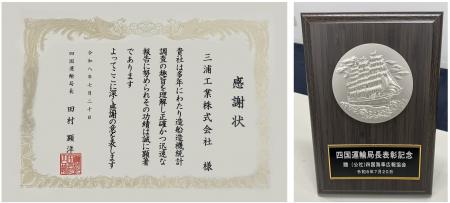 感謝状
三浦工業株式会社 様
貴社は多年にわたり造船造機統計
調査の趣旨を理解し正確かつ迅速な
報告に努められその功績は誠に顕著
であります
よってここに深く感謝の意を表します
令和八年七月二十日
四国運輸局長 田村 顕洋
四国運輸局長表彰記念
贈 (公社)四国海事広報協会
令和8年7月20日